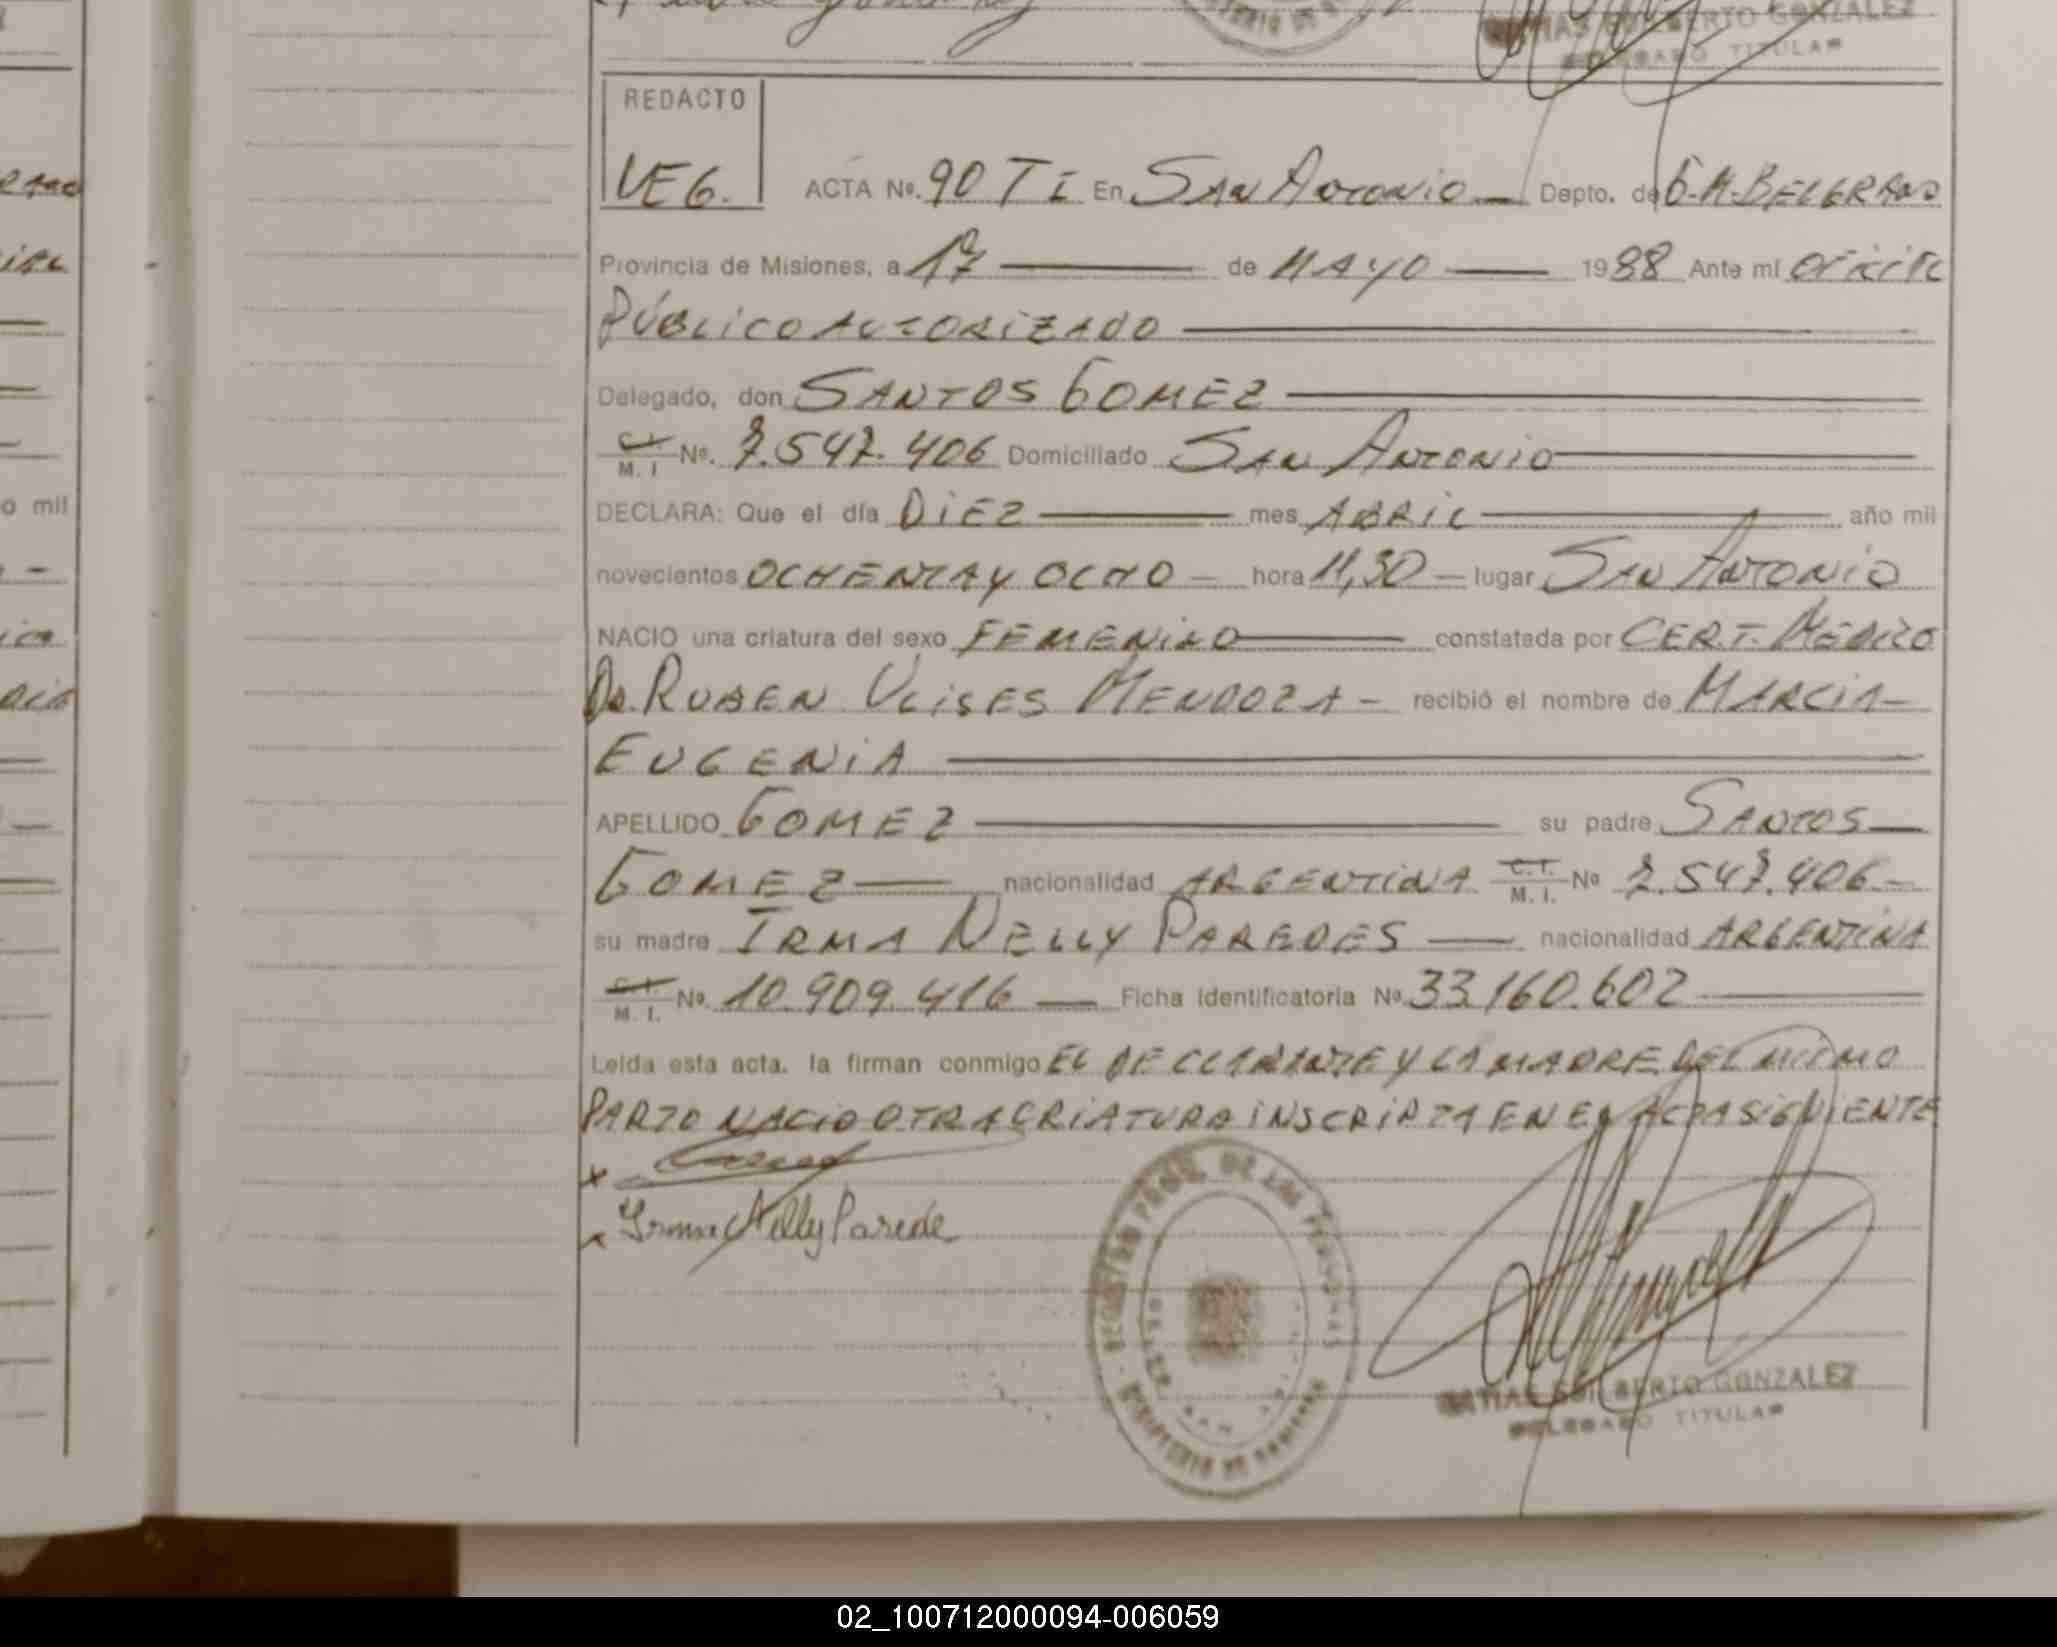 MATIAS GUILBERTO GONZALEZ
DELEGADO TITULAR
REDACTO
VEG. ACTA Nº. 90 TI En San Antonio Depto. de G.M. BELGRANO
Provincia de Misiones, a 17 de MAYO 1988 Ante mí OFICIAL
PÚBLICO AUTORIZADO
Delegado, don SANTOS GOMEZ
C.I. M. I Nº. 7.547.406 Domiciliado SAN ANTONIO
DECLARA: Que el día DIEZ mes ABRIL año mil
novecientos OCHENTA Y OCHO hora 11,30 lugar SAN ANTONIO
NACIO una criatura del sexo FEMENINO constatada por CERT. MÉDICO
Dr. RUBEN ULISES MENDOZA - recibió el nombre de MARCIA
EUGENIA
APELLIDO GOMEZ su padre SANTOS
GOMEZ nacionalidad ARGENTINA C.I. M. I. Nº 7.547.406
su madre IRMA NELLY PAREDES nacionalidad ARGENTINA
C.I. M. I. Nº. 10.909.416 Ficha Identificatoria Nº. 33.160.602
Leída esta acta. la firman conmigo EL DECLARANTE Y LA MADRE DEL MISMO
PARTO NACIO OTRA CRIATURA INSCRIPTA EN EL ACTA SIGUIENTE
Irma Nelly Parede
REGISTRO PROV. DE LAS PERSONAS
MINISTERIO DE GOBIERNO
MATIAS GUILBERTO GONZALEZ
DELEGADO TITULAR
02_100712000094-006059